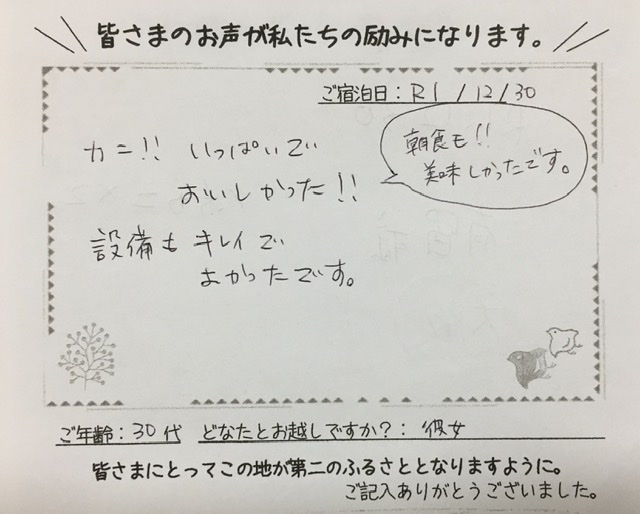 皆さまのお声が私たちの励みになります。
ご宿泊日：R1/12/30
カニ!! いっぱいで
おいしかった!!
朝食も!!
美味しかったです。
設備も キレイで
よかったです。
ご年齢：30代 どなたとお越しですか？：彼女
皆さまにとってこの地が第二のふるさととなりますように。
ご記入ありがとうございました。